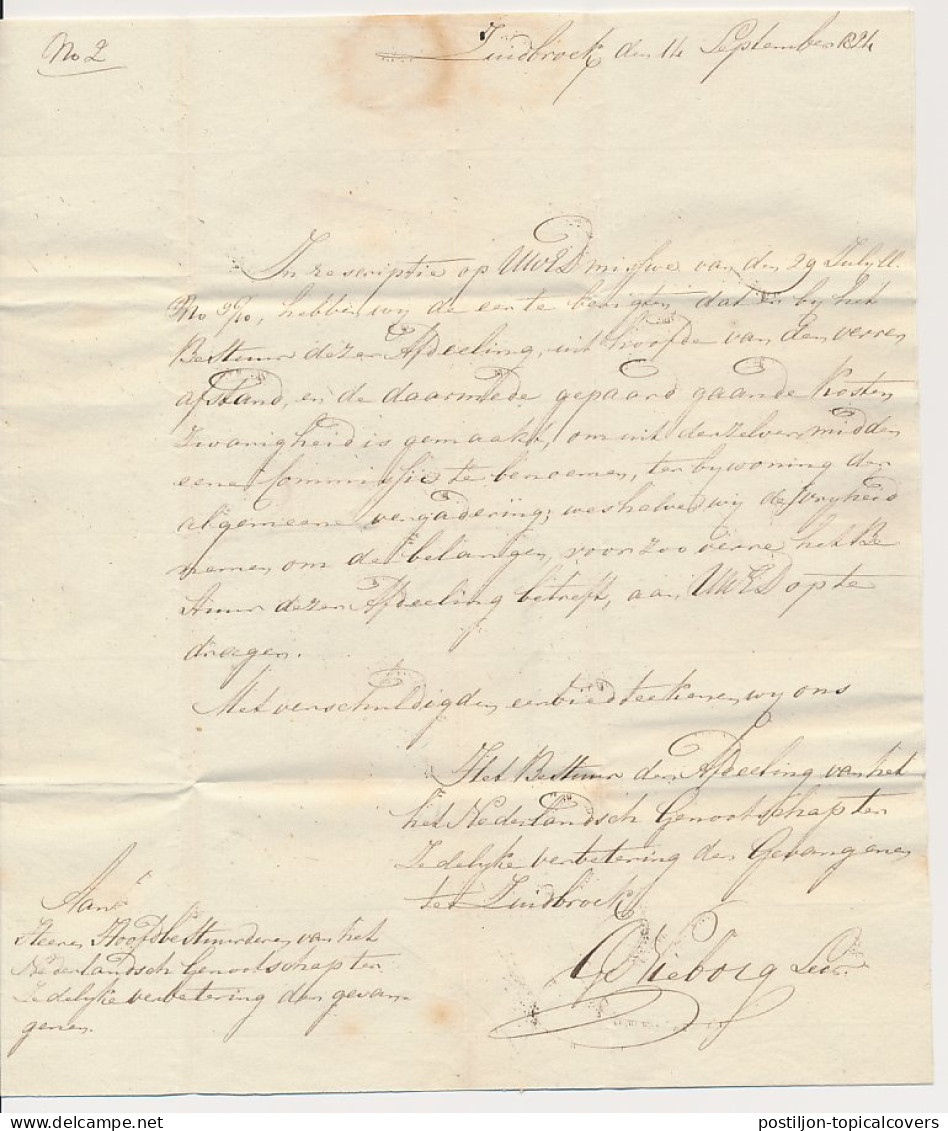 No 2
Zuidbroek den 14 September 1824
In rescriptie op UWED missive van den 29 July ll.
No, hebben wy de eer te berigten, dat er by het
Bestuur dezer Afdeeling, uit hoofde van den verren
afstand, en de daarmede gepaard gaande kosten
zwarigheid is gemaakt, om uit derzelver midden
eene Commissie te benoemen, ter bywoning der
algemeene vergadering; weshalve wy de vryheid
nemen om de belangen, voor zoo verre het Be
stuur dezer Afdeeling betreft, aan UWED op te
dragen.
Met verschuldigden eerbied teekenen wy ons
Het Bestuur der Afdeeling van het
het Nederlandsch Genootschap ter
Zedelyke verbetering der Gevangenen
te Zuidbroek
Secr.
Aan
Heeren Hoofdbestuurderen van het
Nederlandsch Genootschap ter
Zedelyke verbetering der gevan-
genen.
postiljon-topicalcovers